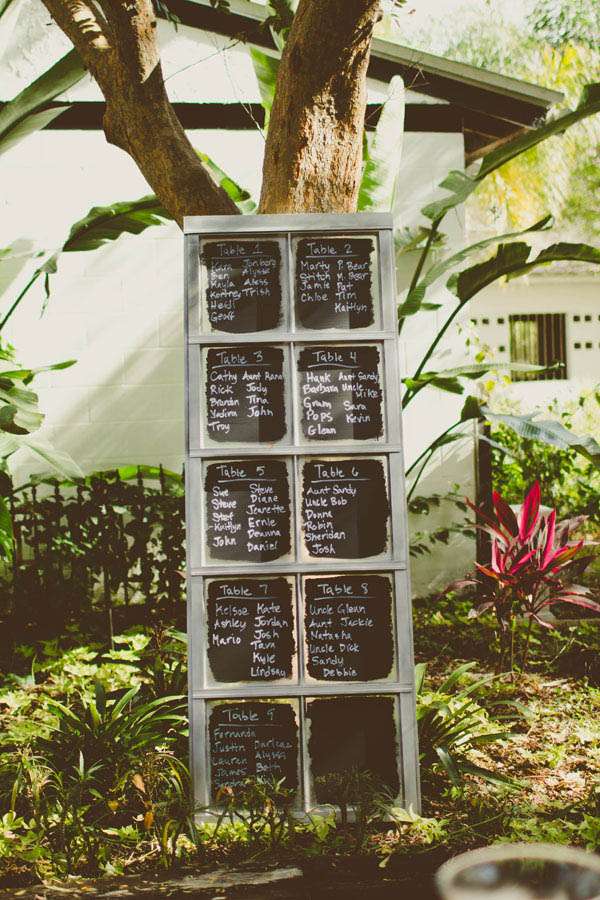 Table 1
Jonberg
Ben Alysse
Kayla Aless
Kortney Trish
Heidi
Geoff
Table 2
Marty P. Bear
Stitch M. Bear
Jamie Pat
Chloe Tim
Kaitlyn
Table 3
Cathy Aunt Rana
Rick Jody
Brandon Tina
Yadira John
Troy
Table 4
Hank Aunt Sandy
Barbara Uncle Mike
Gram Sara
Pops Kevin
Glenn
Table 5
Sue Steve
Steve Diane
Stef Jeanette
Kaitlyn Ernie
John Deanna
Daniel
Table 6
Aunt Sandy
Uncle Bob
Donna
Robin
Sheridan
Josh
Table 7
Kelsie Kate
Ashley Jordan
Mario Josh
Tara
Kyle
Lindsay
Table 8
Uncle Glenn
Aunt Jackie
Natasha
Uncle Dick
Sandy
Debbie
Table 9
Fernanda
Justin
Lauren Alyssa
James Beth